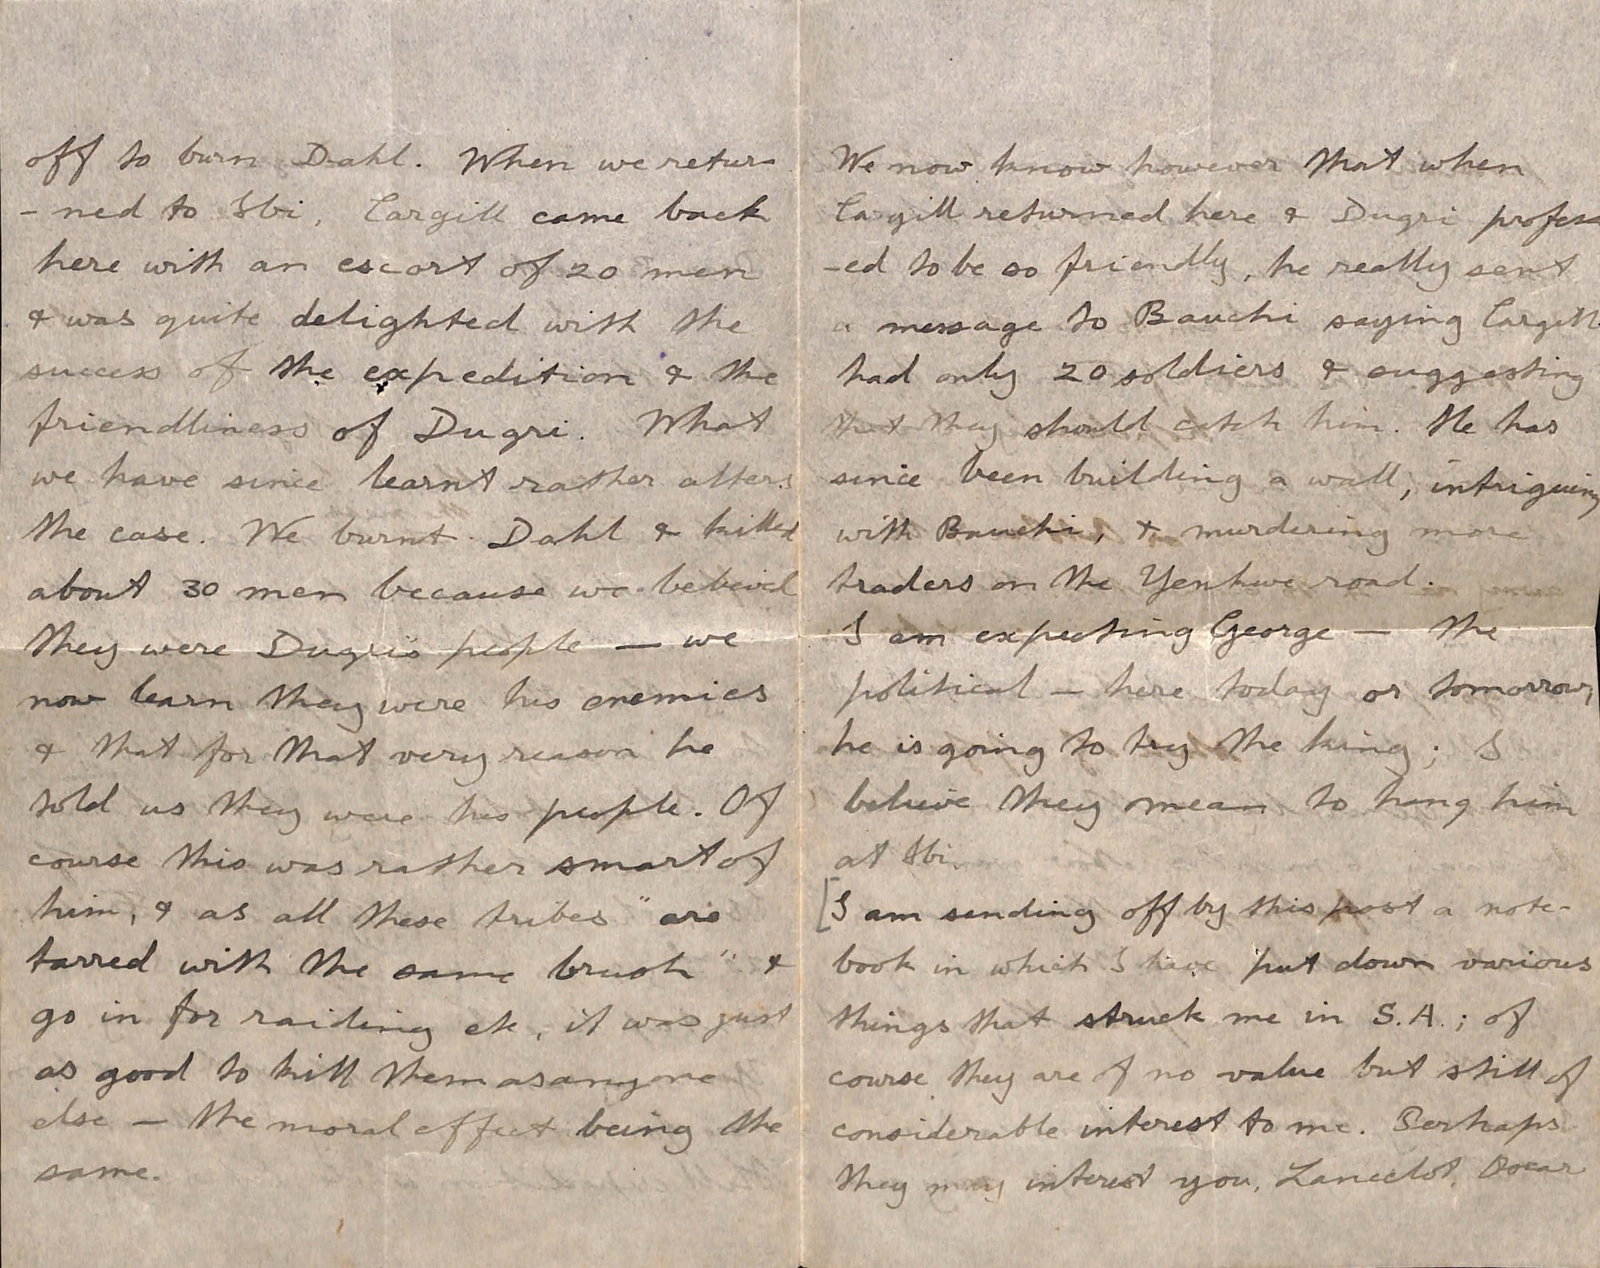 off to burn Dahl. When we retur-
-ned to Ibi, Cargill came back
here with an escort of 20 men
& was quite delighted with the
success of the expedition & the
friendliness of Dugri. What
we have since learnt rather alters
the case. We burnt Dahl & killed
about 30 men because we believed
they were Dugri's people — we
now learn they were his enemies
& that for that very reason he
told us they were his people. Of
course this was rather smart of
him, & as all these tribes "are
tarred with the same brush" &
go in for raiding etc, it was just
as good to kill them as anyone
else — the moral effect being the
same.
We now know however that when
Cargill returned here & Dugri profess
-ed to be so friendly, he really sent
a message to Bauchi saying Cargill
had only 20 soldiers & suggesting
that they should catch him. He has
since been building a wall, intriguing
with Bauchi, & murdering more
traders on the Yenkwe road.
I am expecting George — the
political — here today or tomorrow,
he is going to try the king; I
believe they mean to hang him
at Ibi.
[I am sending off by this post a note-
book in which I have put down various
things that struck me in S.A.; of
course they are of no value but still of
considerable interest to me. Perhaps
they may interest you, Lancelot, Oscar